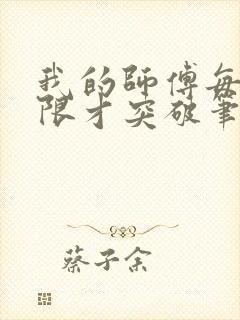 我的師傅每
限才突破筆
蔡子余